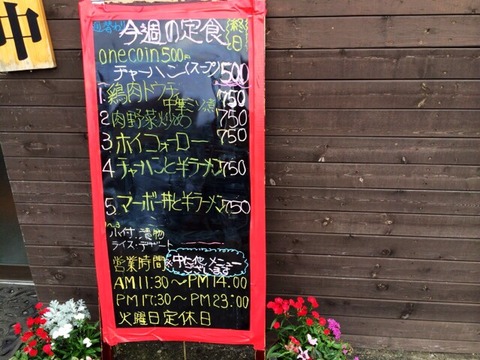 中
週替わり 今週の定食 終日
onecoin 500円
チャーハン(スープ) 500
1. 鶏肉ドウチ 中華ミソ煮 750
2 肉野菜炒め 750
3 ホイコォーロー 750
4 チャーハンと半ラーメン 750
5. マーボー丼と半ラーメン 750
パイ付 漬物
ライス・デザート
営業時間 中に他メニュー
ございます
AM11:30〜PM14:00
PM17:30〜PM23:00
火曜日定休日